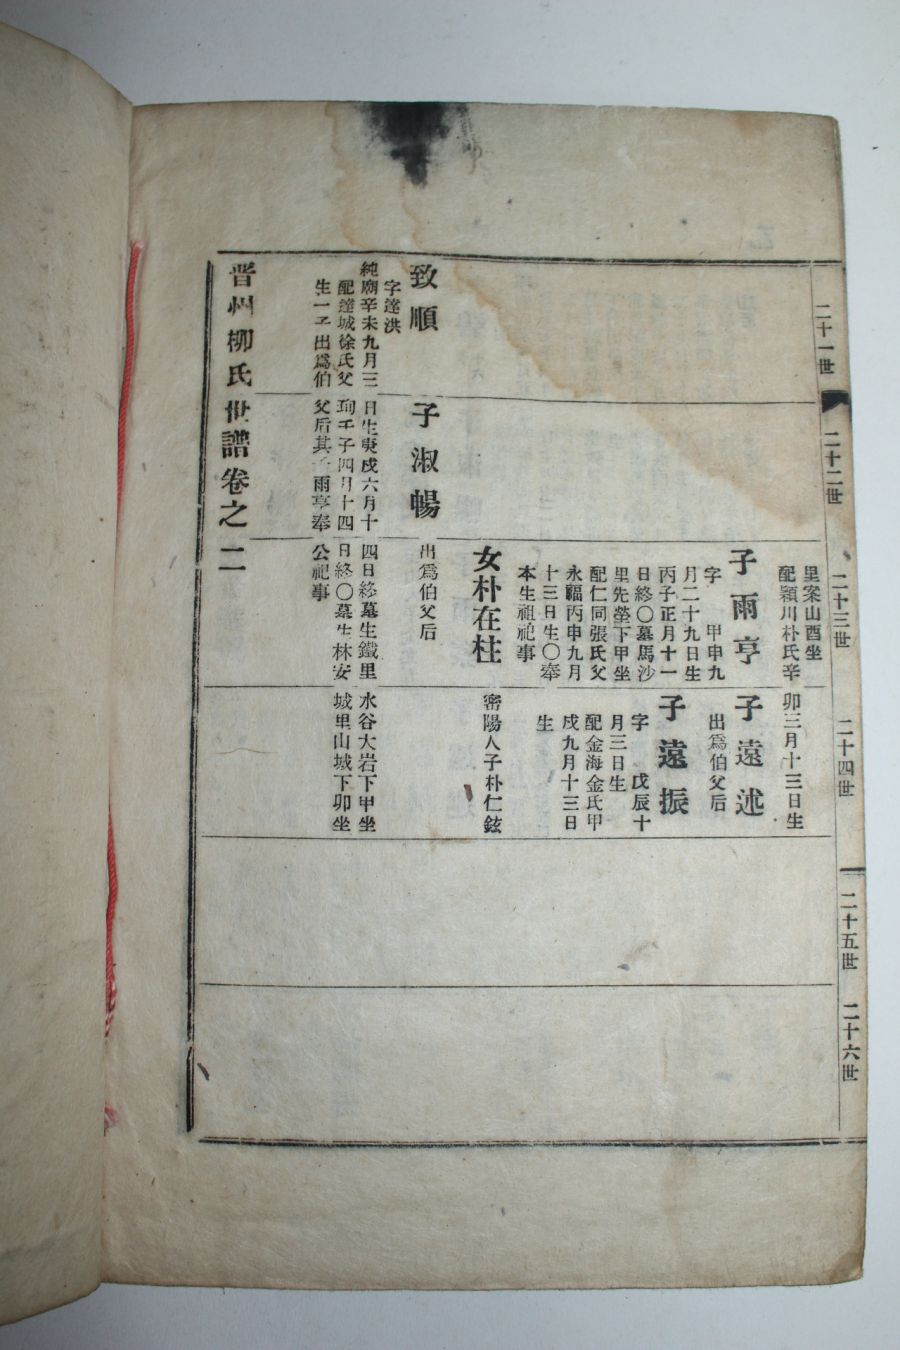 二十一世
二十二世
二十三世
二十四世
二十五世
二十六世
里案山酉坐
配潁川朴氏辛
卯三月十三日生
子雨亨
字　甲申九
月二十九日生
丙子正月十一
日終〇墓馬沙
里先塋下甲坐
配仁同張氏父
永福丙申九月
十三日生〇奉
本生祖祀事
子遠述
出爲伯父后
子遠振
字　戊辰十
月三日生
配金海金氏甲
戌九月十三日
生
女朴在柱
密陽人子朴仁鉉
致順
字達洪
子淑暢
出爲伯父后
純廟辛未九月三
日生庚戌六月十
四日終墓生鐵里
水谷大岩下甲坐
配達城徐氏父
珣壬子四月十四
日終〇墓生林安
城里山城下卯坐
生一子出爲伯
父后其子雨亨奉
公祀事
晋州柳氏世譜卷之二